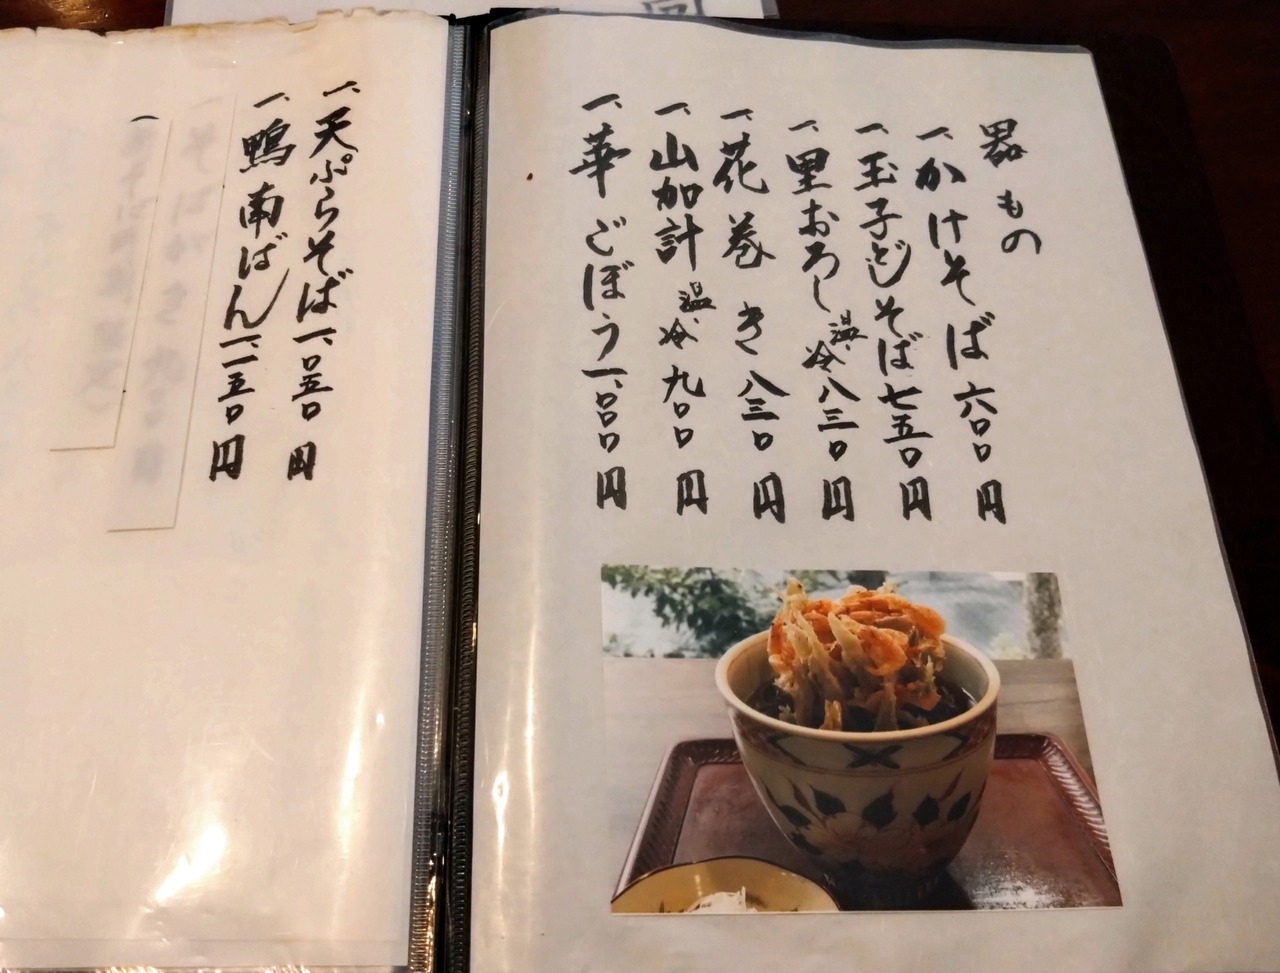 器もの
一、かけそば 六〇〇円
一、玉子とじそば 七五〇円
一、里おろし 温、冷 八三〇円
一、花巻き 八三〇円
一、山加計 温、冷、九〇〇円
一、華ごぼう 一、〇〇〇円
一、天ぷらそば 一、〇五〇円
一、鴨南ばん 一、一五〇円